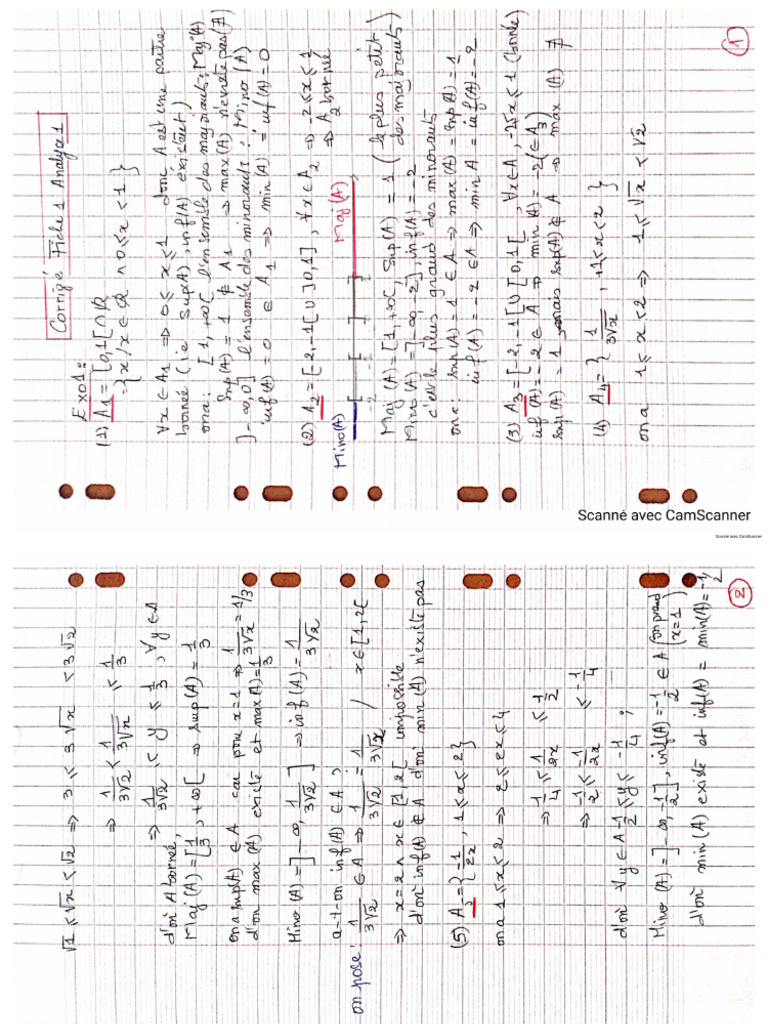 Corrigé Fiche 1 Analyse 1
Exo1:
(1) A₁ = [0,1[ ∩ ℚ
= {x / x ∈ ℚ ∧ 0 ≤ x < 1}
∀x ∈ A₁ ⇒ 0 ≤ x ≤ 1 donc A est une partie
bornée (ie sup(A), inf(A) existent)
ona: [1, +∞[ l'ensemble des majorants: Maj(A)
Sup(A) = 1 ∉ A₁ ⇒ max(A) n'existe pas (∄)
]-∞, 0] l'ensemble des minorants: Mino(A)
inf(A) = 0 ∈ A₁ ⇒ min(A) = inf(A) = 0
(2) A₂ = [-2, -1[ ∪ ]0, 1], ∀x ∈ A₂ ⇒ -2 ≤ x ≤ 1
⇒ A₂ borné
Mino(A) Maj(A)
Maj(A) = [1, +∞[, Sup(A) = 1 (le plus petit des majorants)
Mino(A) = ]-∞, -2], inf(A) = -2
c'est le plus grand des minorants
ona: sup(A) = 1 ∈ A ⇒ max(A) = sup(A) = 1
inf(A) = -2 ∈ A ⇒ min A = inf(A) = -2
(3) A₃ = [-2, -1[ ∪ [0, 1[, ∀x ∈ A, -2 ≤ x ≤ 1 (bornée)
inf(A) = -2 ∈ A ⇒ min(A) = -2 (∈ A₃)
sup(A) = 1, mais sup(A) ∉ A ⇒ max(A) ∄
(4) A₄ = {1/(3√x), +1 ≤ x < 2}
on a 1 ≤ x < 2 ⇒ 1 ≤ √x < √2
1
Scanné avec CamScanner
Scanné avec CamScanner
√1 ≤ √x < √2 ⇒ 3 ≤ 3√x < 3√2
⇒ 1/(3√2) < 1/(3√x) ≤ 1/3
⇒ 1/(3√2) ≤ y ≤ 1/3, ∀y ∈ A
d'où A bornée,
Maj(A) = [1/3, +∞[ ⇒ sup(A) = 1/3
on a sup(A) ∈ A car pour x = 1 ⇒ 1/(3√x) = 1/3
d'où max(A) existe et max(A) = 1/3
Mino(A) = ]-∞, 1/(3√2)] ⇒ inf(A) = 1/(3√2)
a-t-on inf(A) ∈ A?
on pose: 1/(3√2) ∈ A ⇒ 1/(3√2) = 1/(3√x) / x ∈ [1, 2[
⇒ x = 2 ∧ x ∈ [1, 2[ impossible
d'où inf(A) ∉ A d'où min(A) n'existe pas
(5) A₅ = {-1/2x, 1 ≤ x ≤ 2}
on a 1 ≤ x ≤ 2 ⇒ 2 ≤ 2x ≤ 4
⇒ 1/4 ≤ 1/2x ≤ 1/2
⇒ -1/2 ≤ -1/2x ≤ -1/4
d'où ∀y ∈ A -1/2 ≤ y ≤ -1/4;
Mino(A) = ]-∞, -1/2], inf(A) = -1/2 ∈ A (on prend x = 1)
d'où min(A) existe et inf(A) = min(A) = -1/2
2